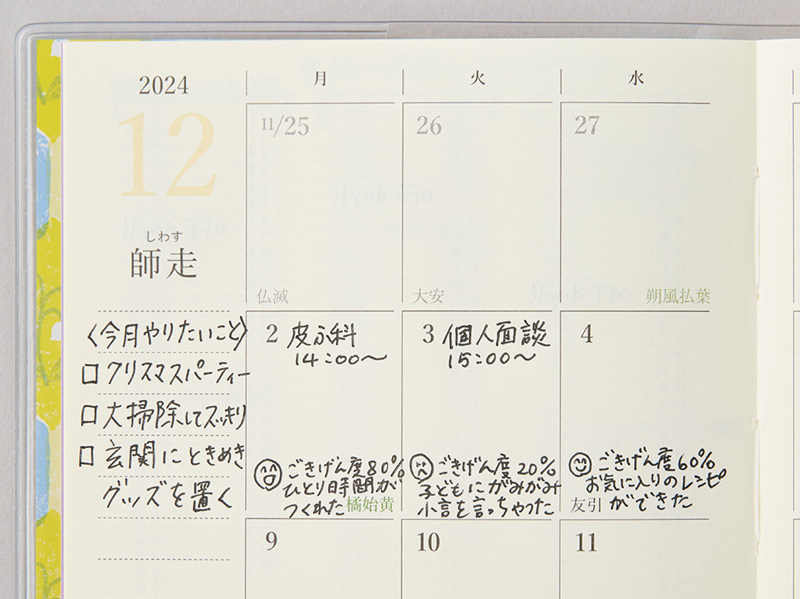 2024
月
火
水
12
しわす
師走
11/25
26
27
仏滅
大安
朔風払葉
〈今月やりたいこと〉
□クリスマスパーティー
□大掃除してスッキリ
□玄関にときめき
グッズを置く
2 皮ふ科
14:00〜
ごきげん度80%
ひとり時間が
つくれた
橘始黄
3 個人面談
15:00〜
ごきげん度20%
子どもにがみがみ
小言を言っちゃった
4
ごきげん度60%
お気に入りのレシピ
ができた
友引
9
10
11